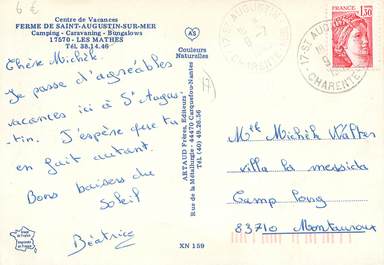 6 €
Centre de Vacances
FERME DE SAINT-AUGUSTIN-SUR-MER
Camping - Caravaning - Bungalows
17570 - LES MATHES
Tél. 33.14.46
Chère Michèle,
Je passe d'agréables
vacances ici à St Augus-
tin. J'espère que tu
en fait autant.
Bons baisers du
Soleil
Béatrice
AS
Couleurs
Naturelles
17
ARTAUD Frères, Editeurs
Rue de la Métallurgie - 44470 Carquefou-Nantes
Tél. (40) 49.26.56
XN 159
17-ST AUGUSTIN
CHARENTE
1,30
Melle Michèle Walter
villa la messida
Camp long
83710 Montauroux